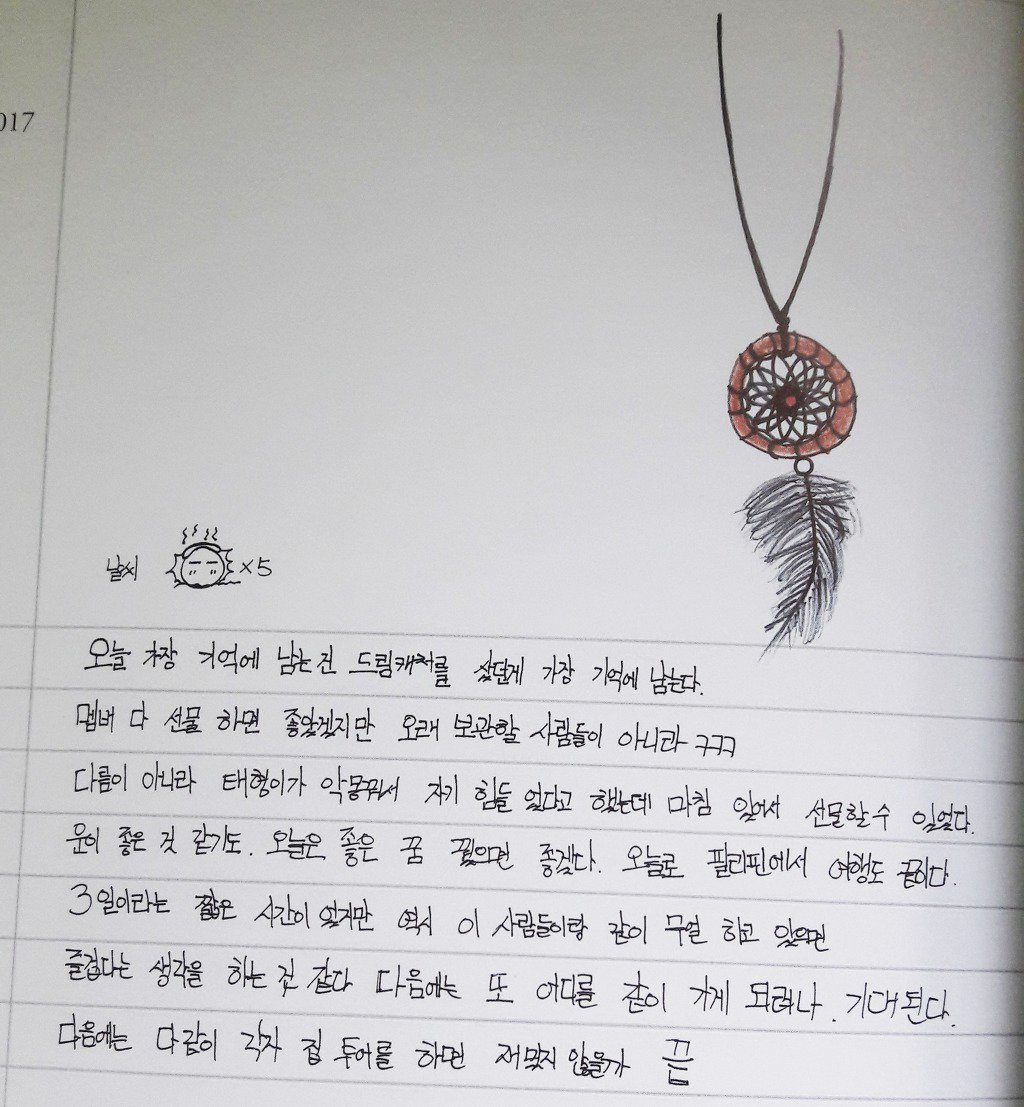 017
날씨 ×5
오늘 가장 기억에 남는건 드림캐쳐를 샀던게 가장 기억에 남는다.
멤버 다 선물 하면 좋았겠지만 오래 보관할 사람들이 아니라 ㅋㅋㅋ
다름이 아니라 태형이가 악몽꿔서 자기 힘들 었다고 했는데 마침 있어서 선물할 수 있었다.
운이 좋은 것 같기도. 오늘은 좋은 꿈 꿨으면 좋겠다. 오늘로 필리핀에서 여행도 끝이다.
3일이라는 짧은 시간이 었지만 역시 이 사람들이랑 같이 무얼 하고 있으면
즐겁다는 생각을 하는 것 같다 다음에는 또 어디를 같이 가게 되려나. 기대된다.
다음에는 다같이 각자 집 투어를 하면 재밌지 않을까 끝